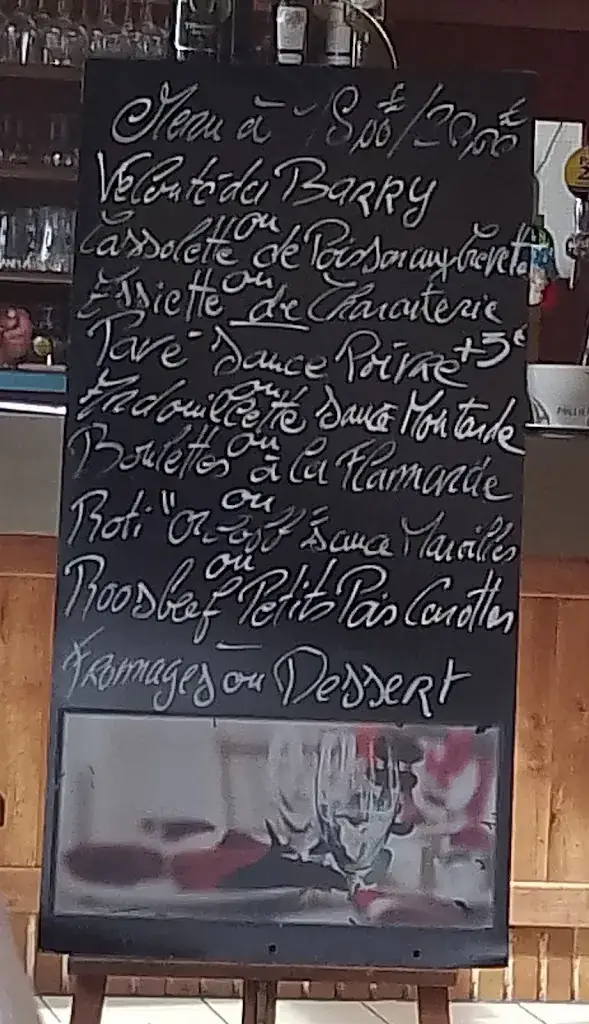 Menu à 18,00€/20,00€
Velouté du BARRY
ou
Cassolette de Poisson aux Crevettes
ou
Assiette de Charcuterie
Pavé Sauce Poivre +3€
ou
Andouillette Sauce Moutarde
ou
Boulettes à la Flamande
ou
Roti "Orloff" Sauce Maroilles
ou
Roosbeef Petits Pois Carottes
Fromages ou Dessert